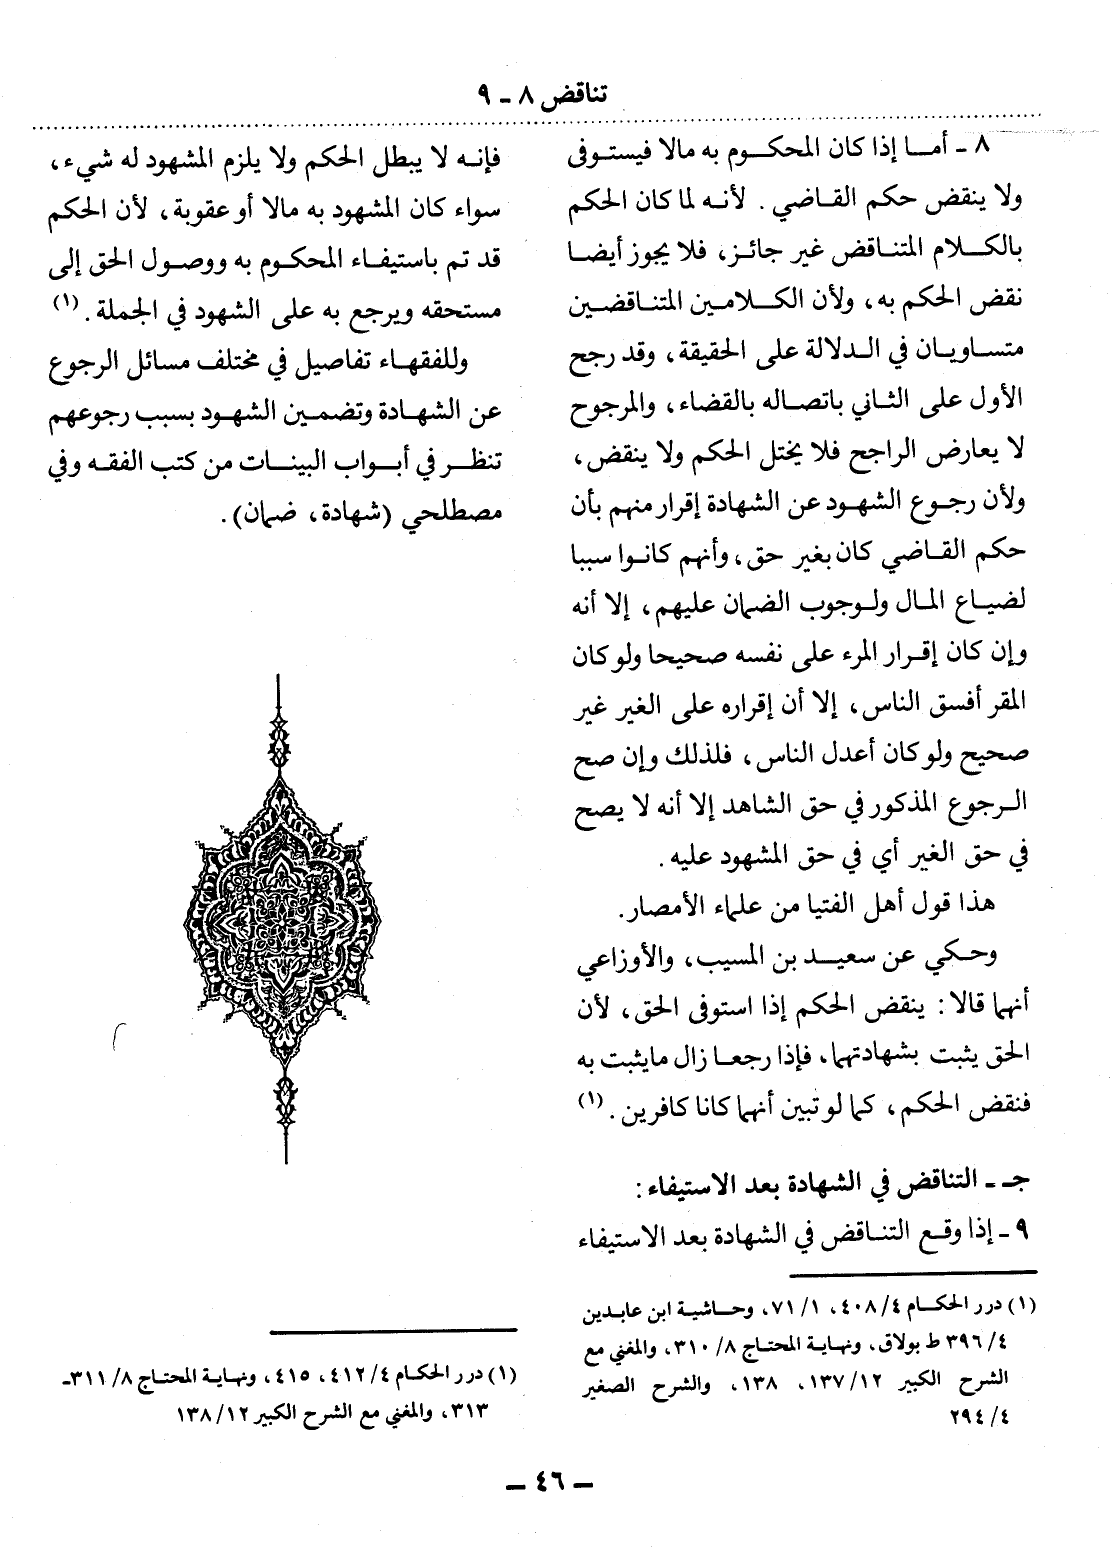 تناقض ٨ - ٩
٨ - أما إذا كان المحكوم به مالا فيستوفى
ولا ينقض حكم القاضي . لأنه لما كان الحكم
بالكلام المتناقض غير جائز، فلا يجوز أيضا
نقض الحكم به، ولأن الكلامين المتناقضين
متساويان في الدلالة على الحقيقة، وقد رجح
الأول على الثاني باتصاله بالقضاء، والمرجوح
لا يعارض الراجح فلا يختل الحكم ولا ينقض،
ولأن رجوع الشهود عن الشهادة إقرار منهم بأن
حكم القاضي كان بغير حق، وأنهم كانوا سببا
لضياع المال ولوجوب الضمان عليهم، إلا أنه
وإن كان إقرار المرء على نفسه صحيحا ولو كان
المقر أفسق الناس، إلا أن إقراره على الغير غير
صحيح ولو كان أعدل الناس، فلذلك وإن صح
الرجوع المذكور في حق الشاهد إلا أنه لا يصح
في حق الغير أي في حق المشهود عليه.
هذا قول أهل الفتيا من علماء الأمصار.
وحكي عن سعيد بن المسيب، والأوزاعي
أنهما قالا: ينقض الحكم إذا استوفى الحق، لأن
الحق يثبت بشهادتهما، فإذا رجعا زال مايثبت به
فنقض الحكم، كما لو تبين أنهما كانا كافرين. (١)
جـ - التناقض في الشهادة بعد الاستيفاء:
٩ - إذا وقع التناقض في الشهادة بعد الاستيفاء
(١) درر الحكام ٤/ ٤٠٨، ١/ ٧١، وحاشية ابن عابدين
٤/ ٣٩٦ ط بولاق، ونهاية المحتاج ٨/ ٣١٠، والمغني مع
الشرح الكبير ١٢/ ١٣٧، ١٣٨، والشرح الصغير
٤/ ٢٩٤
فإنه لا يبطل الحكم ولا يلزم المشهود له شيء،
سواء كان المشهود به مالا أو عقوبة، لأن الحكم
قد تم باستيفاء المحكوم به ووصول الحق إلى
مستحقه ويرجع به على الشهود في الجملة. (١)
وللفقهاء تفاصيل في مختلف مسائل الرجوع
عن الشهادة وتضمين الشهود بسبب رجوعهم
تنظر في أبواب البينات من كتب الفقه وفي
مصطلحي (شهادة، ضمان).
(١) درر الحكام ٤/ ٤١٢، ٤١٥، ونهاية المحتاج ٨/ ٣١١-
٣١٣، والمغني مع الشرح الكبير ١٢/ ١٣٨
- ٤٦ -